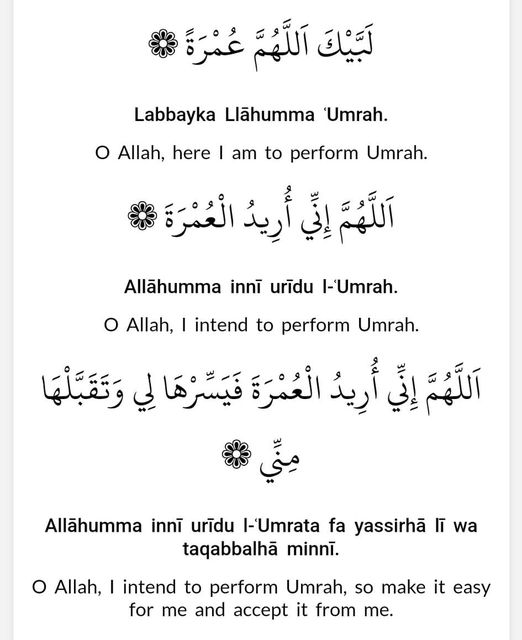 لَبَّيْكَ اَللَّهُمَّ عُمْرَةً ❁
Labbayka Llāhumma ʿUmrah.
O Allah, here I am to perform Umrah.
اَللَّهُمَّ إِنِّي أُرِيدُ الْعُمْرَةَ ❁
Allāhumma innī urīdu l-ʿUmrah.
O Allah, I intend to perform Umrah.
اَللَّهُمَّ إِنِّي أُرِيدُ الْعُمْرَةَ فَيَسِّرْهَا لِي وَتَقَبَّلْهَا
مِنِّي ❁
Allāhumma innī urīdu l-ʿUmrata fa yassirhā lī wa
taqabbalhā minnī.
O Allah, I intend to perform Umrah, so make it easy
for me and accept it from me.